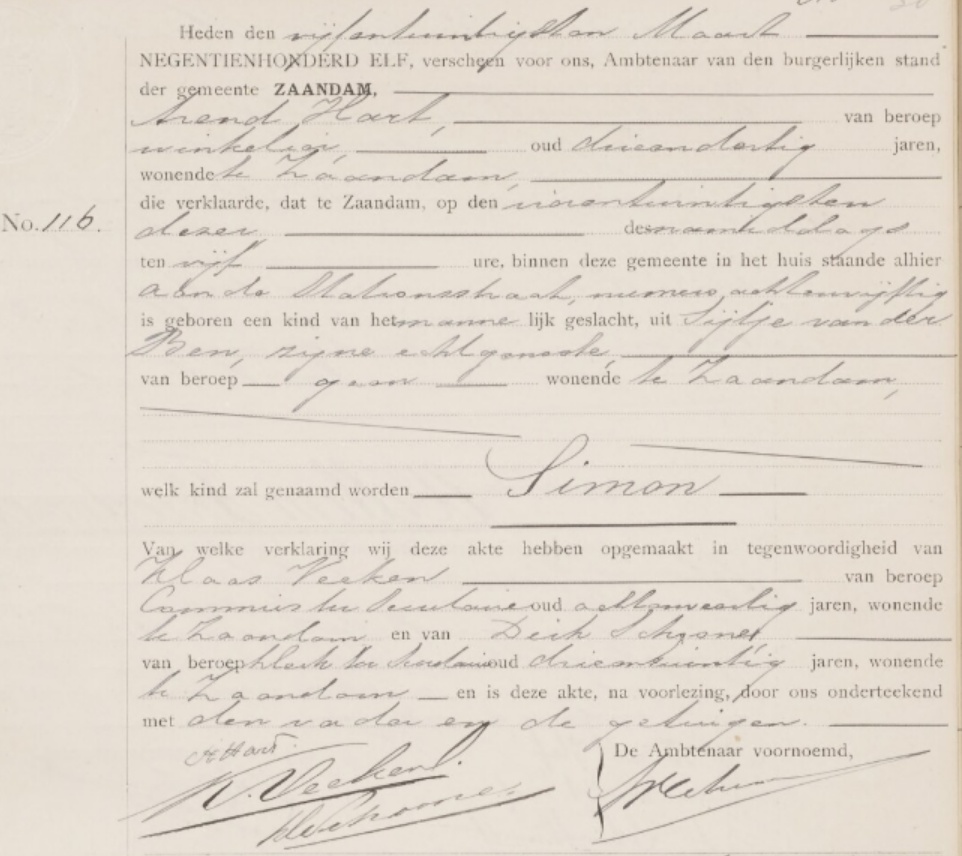 Heden den vijfentwintigsten Maart
NEGENTIENHONDERD ELF, verscheen voor ons, Ambtenaar van den burgerlijken stand
der gemeente ZAANDAM,
Arend Hart, van beroep
winkelier, oud drieendertig jaren,
wonende te Zaandam,
die verklaarde, dat te Zaandam, op den vierentwintigsten
No. 116. dezer, des namiddags
ten vijf ure, binnen deze gemeente in het huis staande alhier
aan de Stationsstraat, numero achtenvijftig
is geboren een kind van het manne lijk geslacht, uit Sijtje van der
Ben, zijne echtgenoote,
van beroep geen wonende te Zaandam,
welk kind zal genaamd worden Simon
Van welke verklaring wij deze akte hebben opgemaakt in tegenwoordigheid van
Klaas Veeken van beroep
Commies ter Secretarie oud achtenveertig jaren, wonende
te Zaandam en van Dirk Schoone
van beroep klerk ter Secretarie oud drieentwintig jaren, wonende
te Zaandam en is deze akte, na voorlezing, door ons onderteekend
met den vader en de getuigen.
A Hart.
De Ambtenaar voornoemd,
K. Veeken.
D Schoone.